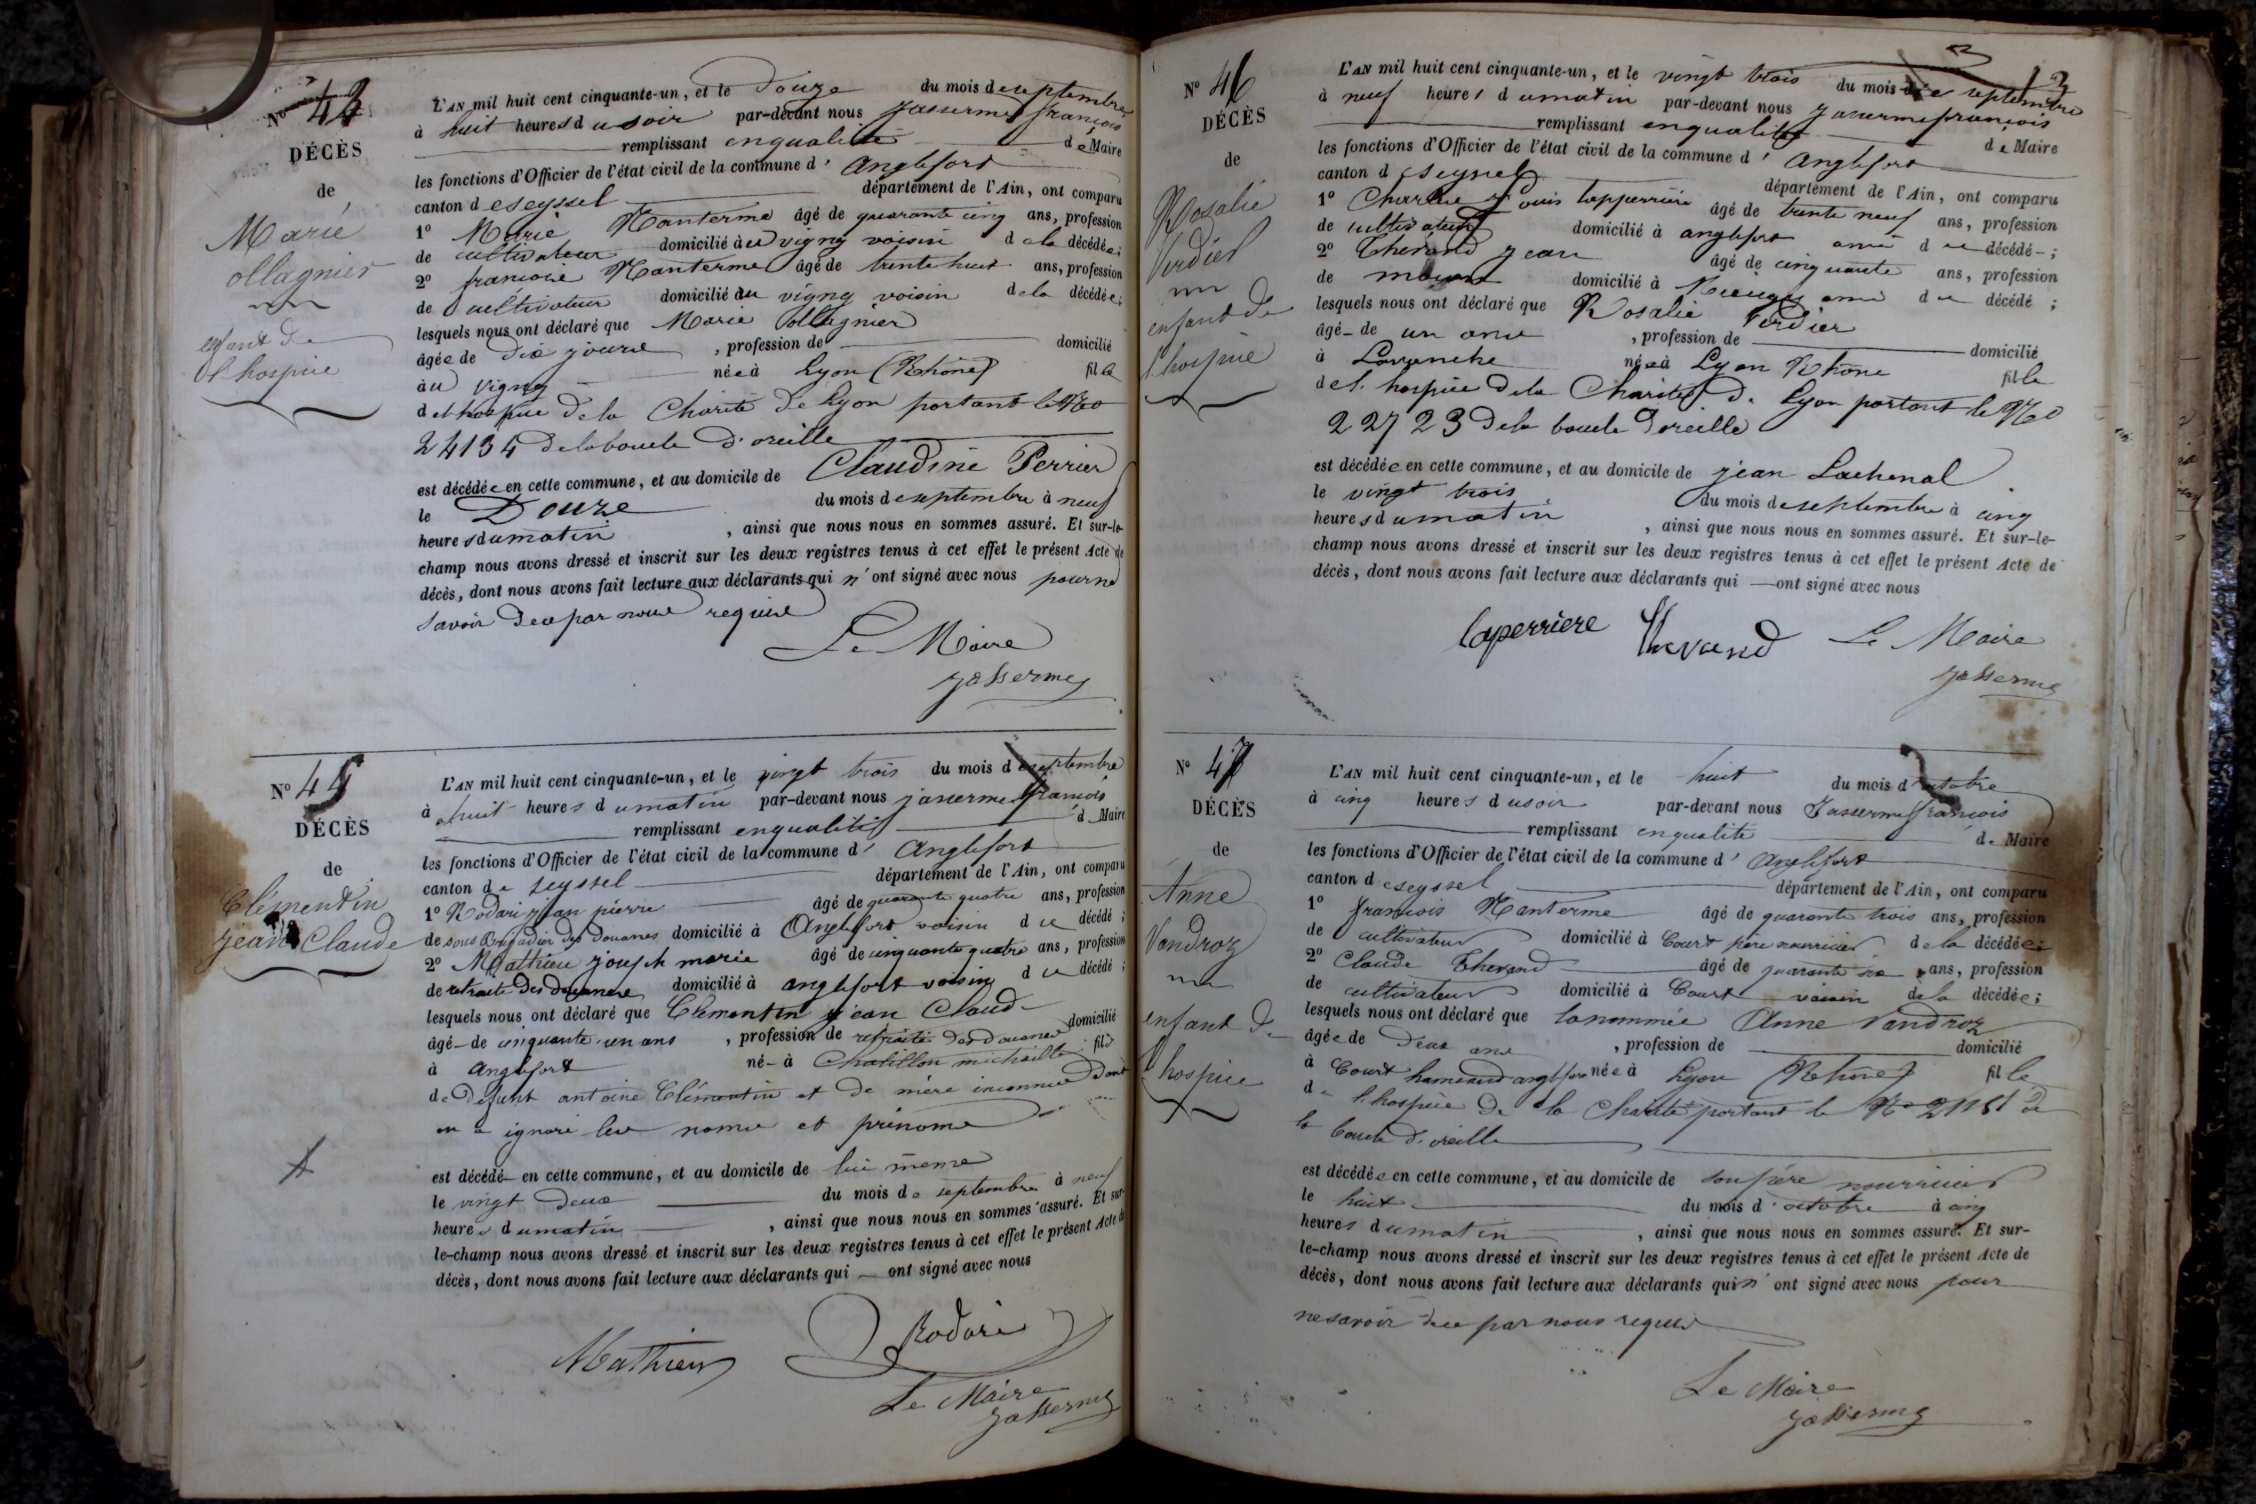 Nº 44
DÉCÈS
de
Marie
ollagnier
enfant de
l'hospice
L'AN mil huit cent cinquante-un, et le Douze du mois de septembre
à huit heures du soir par-devant nous Jasserme françois
remplissant en qualité de Maire
les fonctions d'Officier de l'état civil de la commune d' anglefort
canton de seyssel département de l'Ain, ont comparu
1º Marie Manterme âgé de quarante cinq ans, profession
de cultivateur domicilié à vigny voisin de la décédée;
2º françois Manterme âgé de trente huit ans, profession
de cultivateur domicilié au vigny voisin de la décédée;
lesquels nous ont déclaré que Marie ollagnier
âgée de dix jours , profession de domicilié
au vigny née à Lyon (Rhône) fille
de l'hospice de la Charité de Lyon portant le Nº
24134 de la boucle d'oreille
est décédée en cette commune, et au domicile de Claudine Perrier
le Douze du mois de septembre à neuf
heures du matin , ainsi que nous nous en sommes assuré. Et sur-le-
champ nous avons dressé et inscrit sur les deux registres tenus à cet effet le présent Acte de
décès, dont nous avons fait lecture aux déclarants qui n'ont signé avec nous pour ne
savoir de ce par nous requis
Le Maire
Jasserme
Nº 45
DÉCÈS
de
Clémentin
jean Claude
L'AN mil huit cent cinquante-un, et le vingt trois du mois de septembre
à huit heures du matin par-devant nous jasserme françois
remplissant en qualité de Maire
les fonctions d'Officier de l'état civil de la commune d' Anglefort
canton de seyssel département de l'Ain, ont comparu
1º Rodari jean pierre âgé de quarante quatre ans, profession
de sous Brigadier des douanes domicilié à Anglefort voisin du décédé;
2º Mathieu joseph marie âgé de cinquante quatre ans, profession
de retraite des douanes domicilié à anglefort voisin du décédé;
lesquels nous ont déclaré que Clémentin jean Claude
âgé de cinquante un ans , profession de retraité des douanes domicilié
à anglefort né à Chatillon michaille fils
de défunt antoine Clémentin et de mère inconnue dont
on a ignoré les noms et prénoms
est décédé en cette commune, et au domicile de lui même
le vingt deux du mois de septembre à neuf
heures du matin , ainsi que nous nous en sommes assuré. Et sur-
le-champ nous avons dressé et inscrit sur les deux registres tenus à cet effet le présent Acte de
décès, dont nous avons fait lecture aux déclarants qui ont signé avec nous
Mathieu Rodari
Le Maire
Jasserme
Nº 46
DÉCÈS
de
Rosalie
Verdier
enfant de
l'hospice
L'AN mil huit cent cinquante-un, et le vingt trois du mois de septembre
à neuf heures du matin par-devant nous jasserme françois
remplissant en qualité de Maire
les fonctions d'Officier de l'état civil de la commune d' anglefort
canton de seyssel département de l'Ain, ont comparu
1º Charles Louis lapperrière âgé de trente neuf ans, profession
de cultivateur domicilié à anglefort ami du décédé;
2º Thevand jean âgé de cinquante ans, profession
de maçon domicilié à ami du décédé;
lesquels nous ont déclaré que Rosalie Verdier
âgé de un ans , profession de domicilié
à Lavanche née à Lyon Rhône fille
de l'hospice de la Charité de Lyon portant le Nº
22723 de la boucle d'oreille
est décédée en cette commune, et au domicile de jean Lachenal
le vingt trois du mois de septembre à cinq
heures du matin , ainsi que nous nous en sommes assuré. Et sur-le-
champ nous avons dressé et inscrit sur les deux registres tenus à cet effet le présent Acte de
décès, dont nous avons fait lecture aux déclarants qui ont signé avec nous
laperriere Thevand Le Maire
Jasserme
Nº 47
DÉCÈS
de
Anne
Vandroz
enfant de
l'hospice
L'AN mil huit cent cinquante-un, et le huit du mois d'octobre
à cinq heures du soir par-devant nous Jasserme françois
remplissant en qualité de Maire
les fonctions d'Officier de l'état civil de la commune d' Anglefort
canton de seyssel département de l'Ain, ont comparu
1º françois Manterme âgé de quarante trois ans, profession
de cultivateur domicilié à Court père nourricier de la décédée;
2º Claude Thevand âgé de quarante six ans, profession
de cultivateur domicilié à Court voisin de la décédée;
lesquels nous ont déclaré que la nommée Anne Vandroz
âgée de deux ans , profession de domicilié
à Court hameau d'anglefort née à Lyon (Rhône) fille
de l'hospice de la Charité portant le Nº 21151 de
la boucle d'oreille
est décédée en cette commune, et au domicile de son père nourricier
le huit du mois d'octobre à cinq
heures du matin , ainsi que nous nous en sommes assuré. Et sur-
le-champ nous avons dressé et inscrit sur les deux registres tenus à cet effet le présent Acte de
décès, dont nous avons fait lecture aux déclarants qui n'ont signé avec nous pour
ne savoir de ce par nous requis
Le Maire
Jasserme